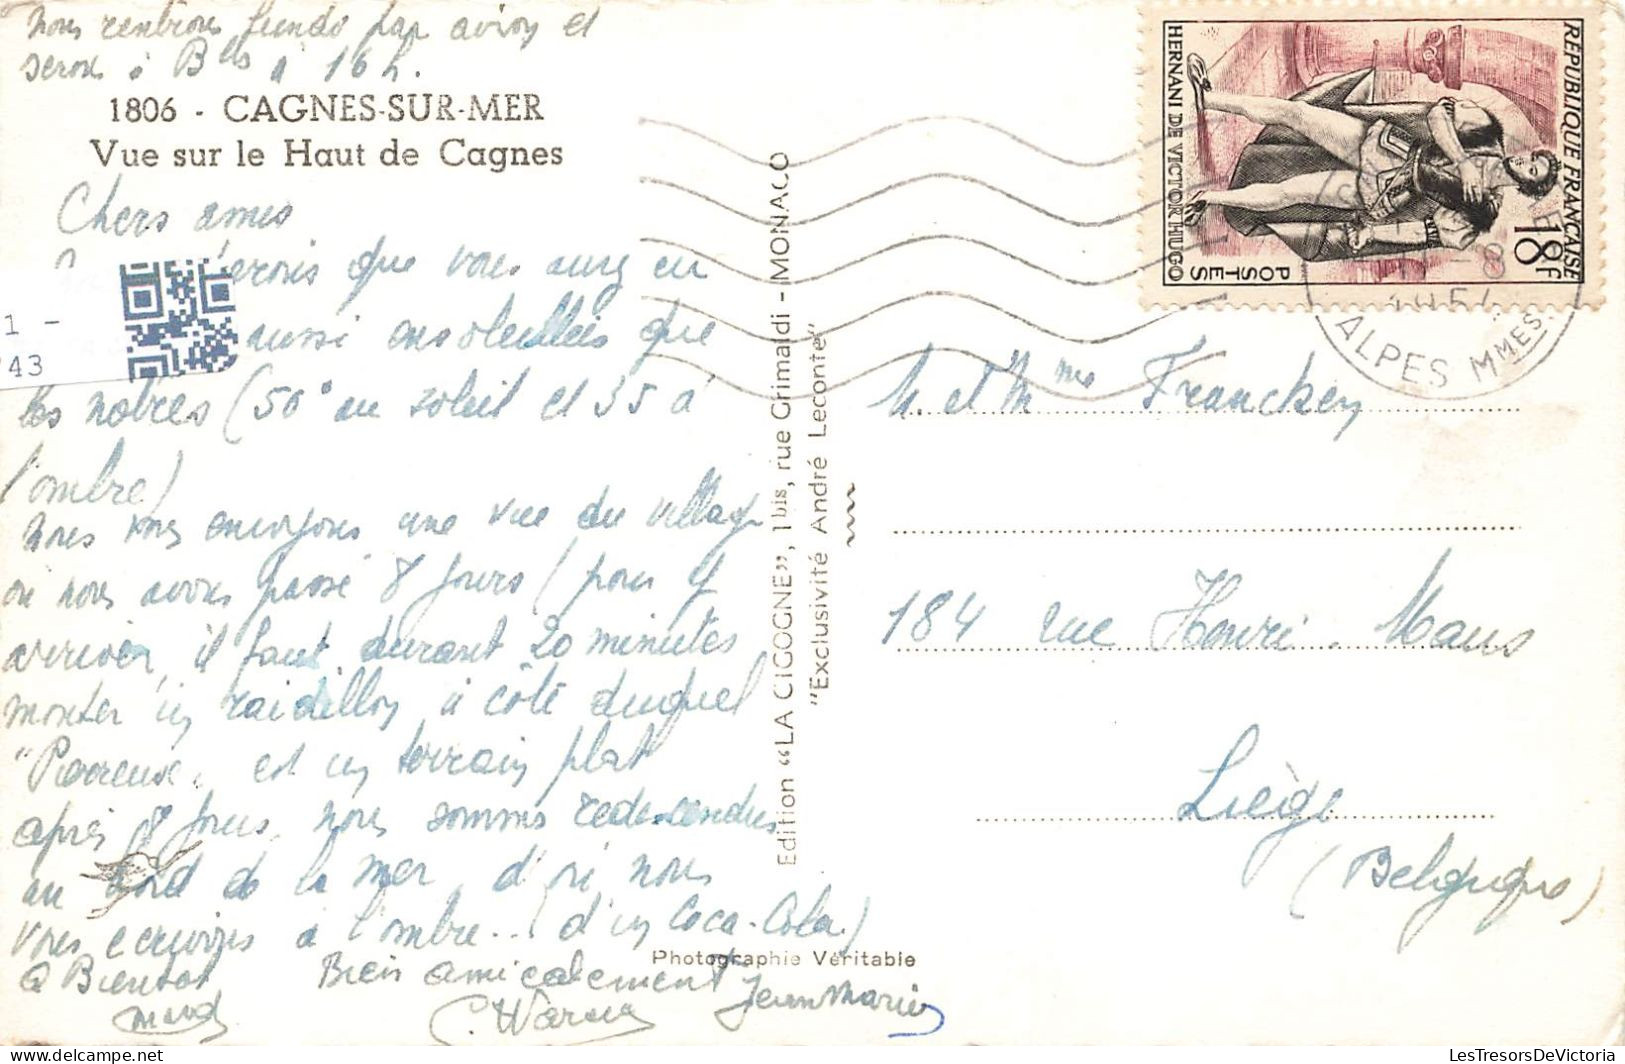 Nous rentrons lundi par avion et
serons à B^lles à 16 h.
1806 - CAGNES-SUR-MER
Vue sur le Haut de Cagnes
Chers amis
que vous avez eu
aussi ensoleillées que
les nôtres (50° au soleil et 35 à
l'ombre)
Nous vous envoyons une vue du village
où nous avons passé 8 jours (pour y
arriver, il faut durant 20 minutes
monter un raidillon à côté duquel
"Pierreuse" est un terrain plat
après 8 jours, nous sommes redescendus
au bord de la mer d'où nous
vous écrivons à l'ombre... (d'un Coca-Cola)
à Bientôt
Bien amicalement
Jean Marie
1 -
743
Edition "LA CIGOGNE", 1bis, rue Grimaldi - MONACO
"Exclusivité André Leconte"
Photographie Véritable
RÉPUBLIQUE FRANÇAISE
18F
POSTES
HERNANI DE VICTOR HUGO
-8
1954
ALPES MMES
M. et Mme Francken
184 rue Henri Maus
Liège
(Belgique)
LesTresorsDeVictoria
delcampe.net